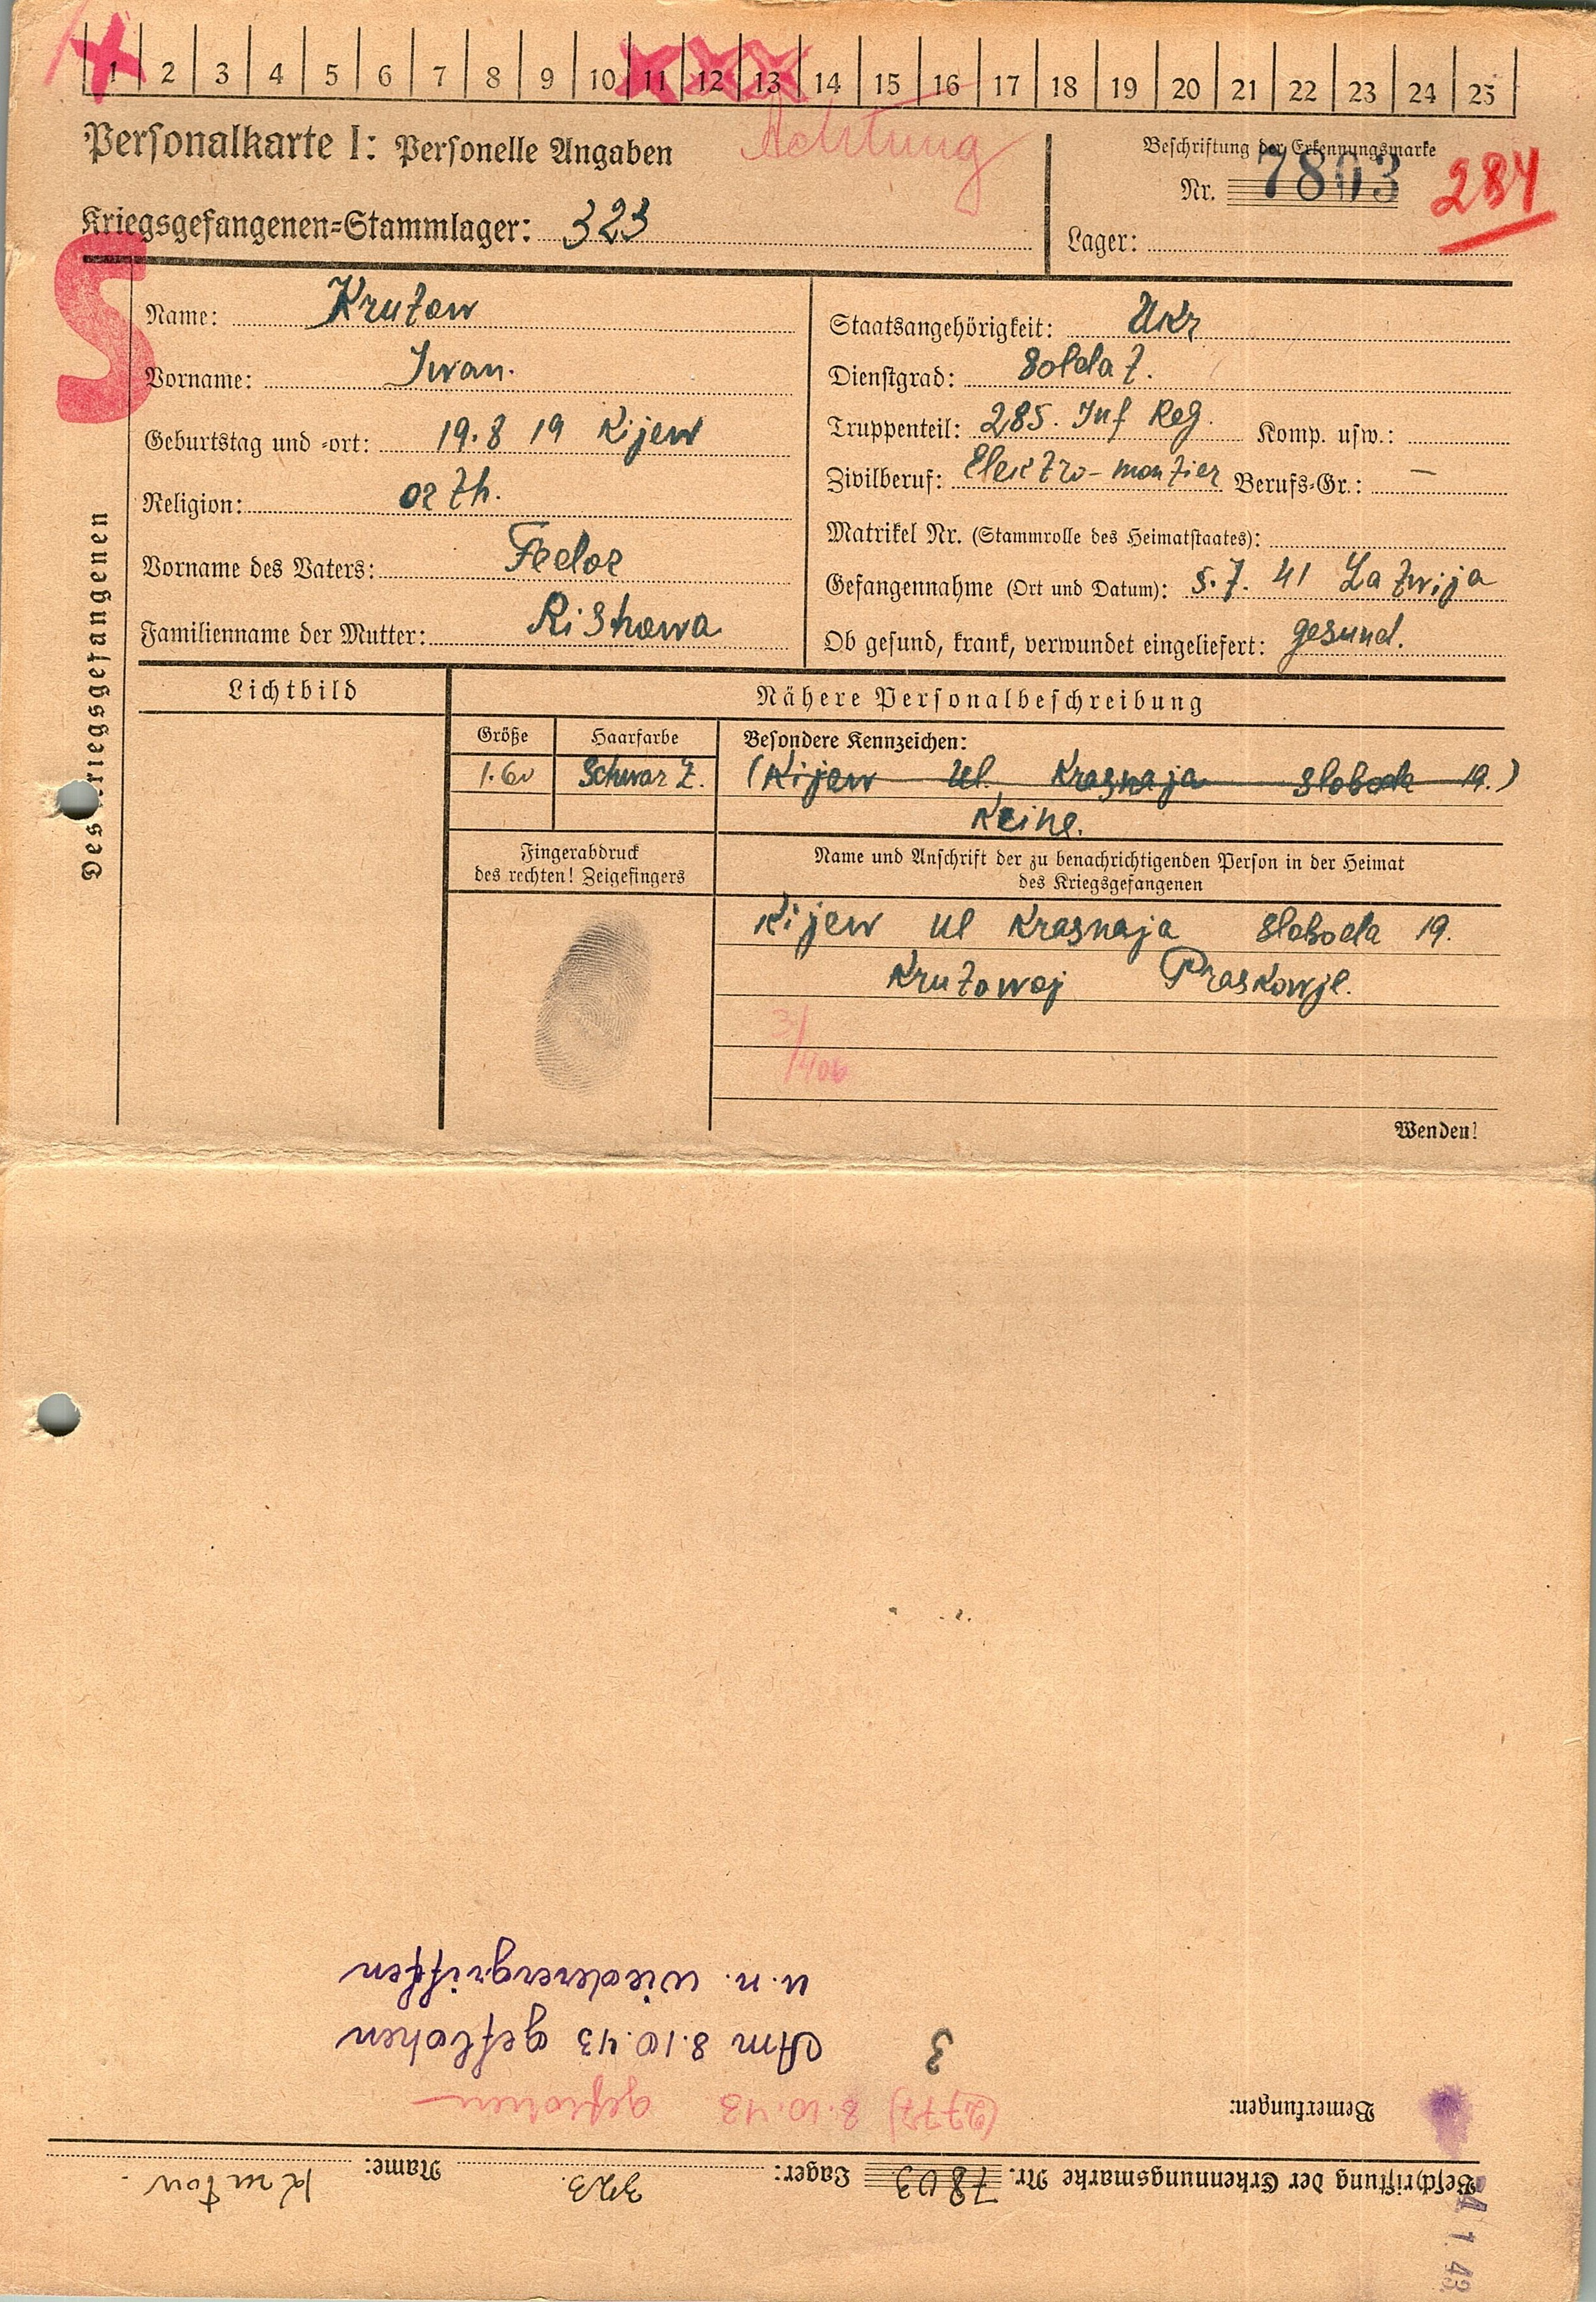 1 2 3 4 5 6 7 8 9 10 11 12 13 14 15 16 17 18 19 20 21 22 23 24 25
Personalkarte I: Personelle Angaben
Achtung
Beschriftung der Erkennungsmarke
Nr. 7803
284
Kriegsgefangenen=Stammlager: 323
Lager:
S
Des Kriegsgefangenen
Name: Krutow
Vorname: Iwan.
Geburtstag und =ort: 19.8 19 Kijew
Religion: orth.
Vorname des Vaters: Fedor
Familienname der Mutter:
Staatsangehörigkeit: Ukr
Dienstgrad: Soldat.
Truppenteil: 285. Inf Reg. Komp. usw.:
Zivilberuf: Elektro-montier Berufs=Gr.: —
Matrikel Nr. (Stammrolle des Heimatstaates):
Gefangennahme (Ort und Datum): 5.7. 41 Latwija
Ob gesund, krank, verwundet eingeliefert: gesund.
Lichtbild
Nähere Personalbeschreibung
Größe
Haarfarbe
Besondere Kennzeichen:
1.60
Schwarz.
(Kijew ul. Krasnaja sloboda 19.)
Keine.
Fingerabdruck
des rechten! Zeigefingers
Name und Anschrift der zu benachrichtigenden Person in der Heimat
des Kriegsgefangenen
Kijew ul Krasnaja Sloboda 19.
Krutowoj Praskowje.
Wenden!
Beschriftung der Erkennungsmarke Nr. 7803 Lager: 323. Name: Krutow.
Bemerkungen:
(2777) 8.10.43 geflohen
3
Am 8.10.43 geflohen
u. n. wiederergriffen
4 1. 43